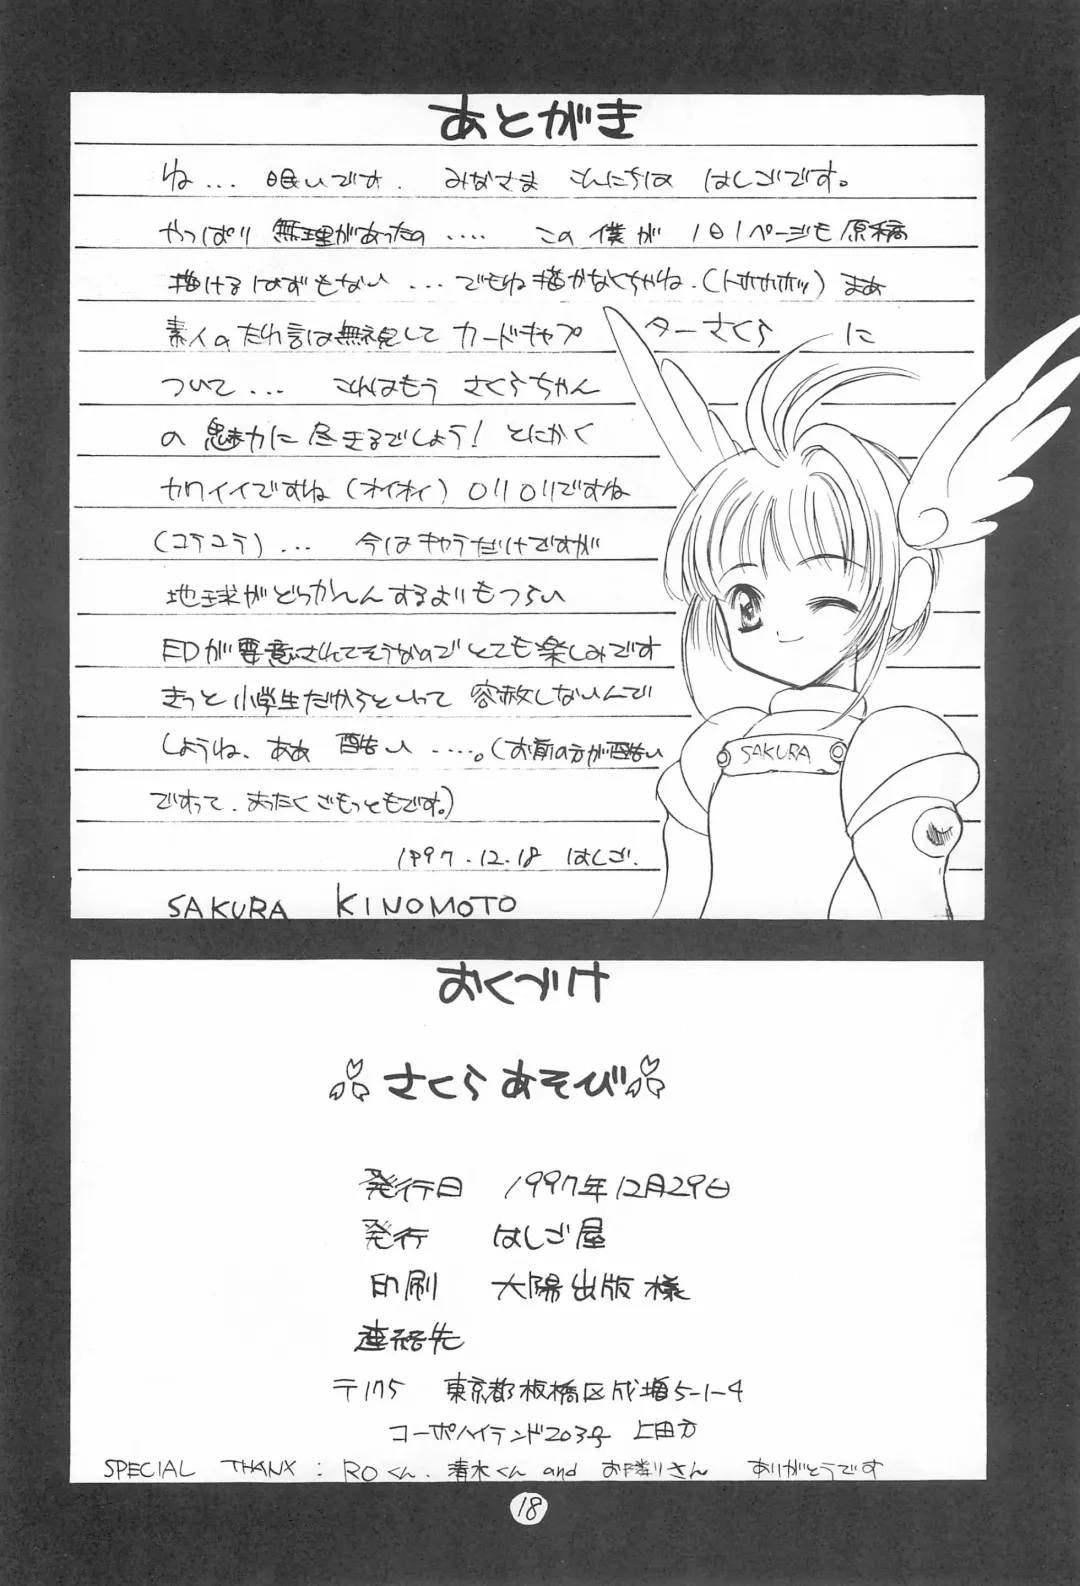 あとがき
ね... 眠いです. みなさま こんにちは はしごです。
やっぱり 無理があったの .... この 僕が 181ページも 原稿
描けるはずもない ... でもね描かなくちゃね.(トホホホホッ) まあ
素人のたれ言は無視して カードキャプ ターさくら に
ついて ... これはもう さくらちゃん
の 魅力に 尽きるでしょう! とにかく
カワイイですね (オイオイ) ロリロリですね
(コラコラ) ... 今はキャラだけですが
地球がどっかんんするよりもつらい
EDが要意されてそうなのでとても楽しみです
きっと小学生だからといって 容赦しないんで
しょうね、ああ 酷い .....。(お前の方が酷い
ですって、まったくごもっともです。)
1997.12.18 はしご.
SAKURA KINOMOTO
SAKURA
おくづけ
さくら あそび
発行日 1997年12月29日
発行 はしご屋
印刷 大陽出版様
連絡先
〒175 東京都板橋区成増5-1-4
コーポハイランド203号 上田方
SPECIAL THANX : ROくん. 清水くん and お隣りさん ありがとうです
18